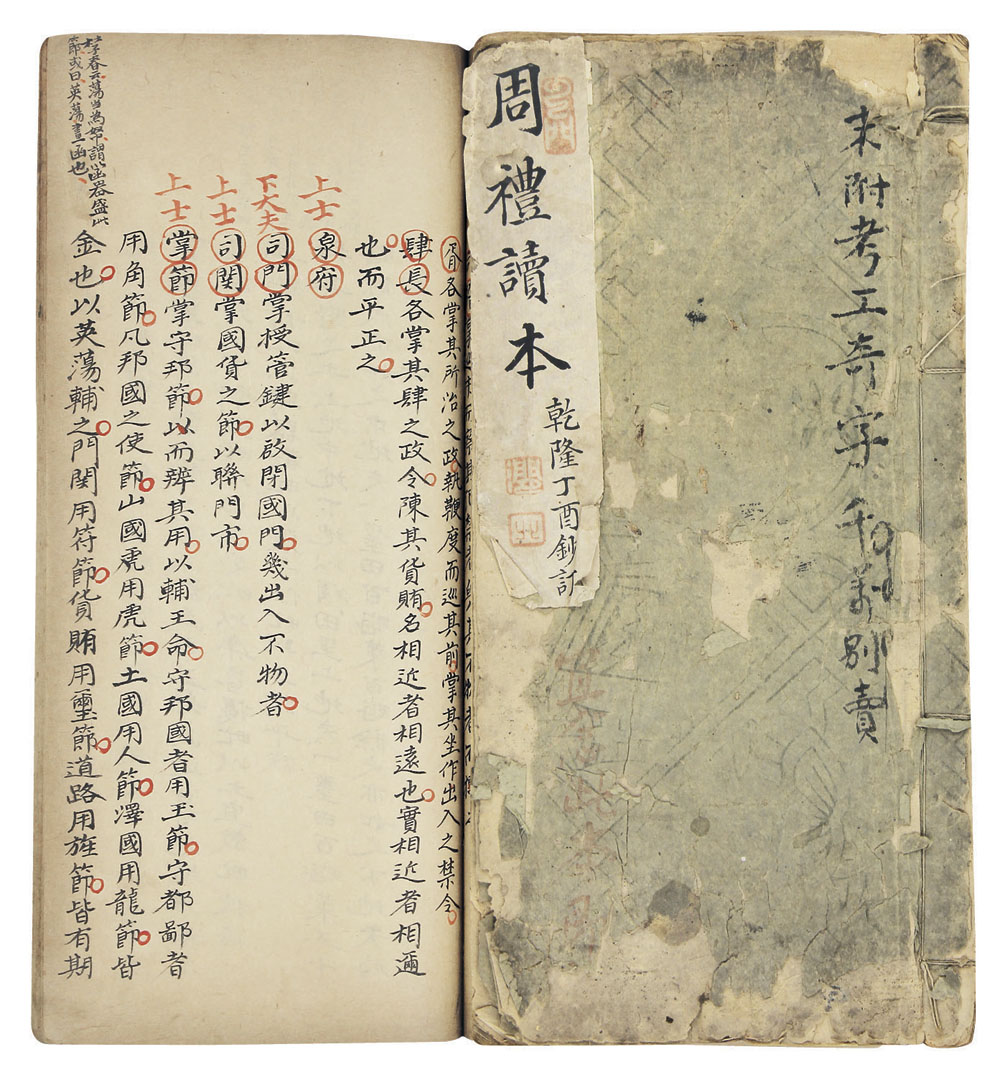 末附考工奇字千萬別賣
周禮讀本
乾隆丁酉鈔訂
胥各掌其所治之政執鞭度而巡其前掌其坐作出入之禁令
肆長各掌其肆之政令陳其貨賄名相近者相遠也實相近者相邇
也而平正之
上士
泉府
下大夫
司門掌授管鍵以啟閉國門幾出入不物者
上士
司關掌國貨之節以聯門市
上士
掌節掌守邦節以而辨其用以輔王命守邦國者用玉節守都鄙者
用角節凡邦國之使節山國虎用虎節土國用人節澤國用龍節皆
金也以英蕩輔之門關用符節貨賄用璽節道路用旌節皆有期
杜子春云蕩當為帑謂以函器盛此
節或曰英蕩畫函也